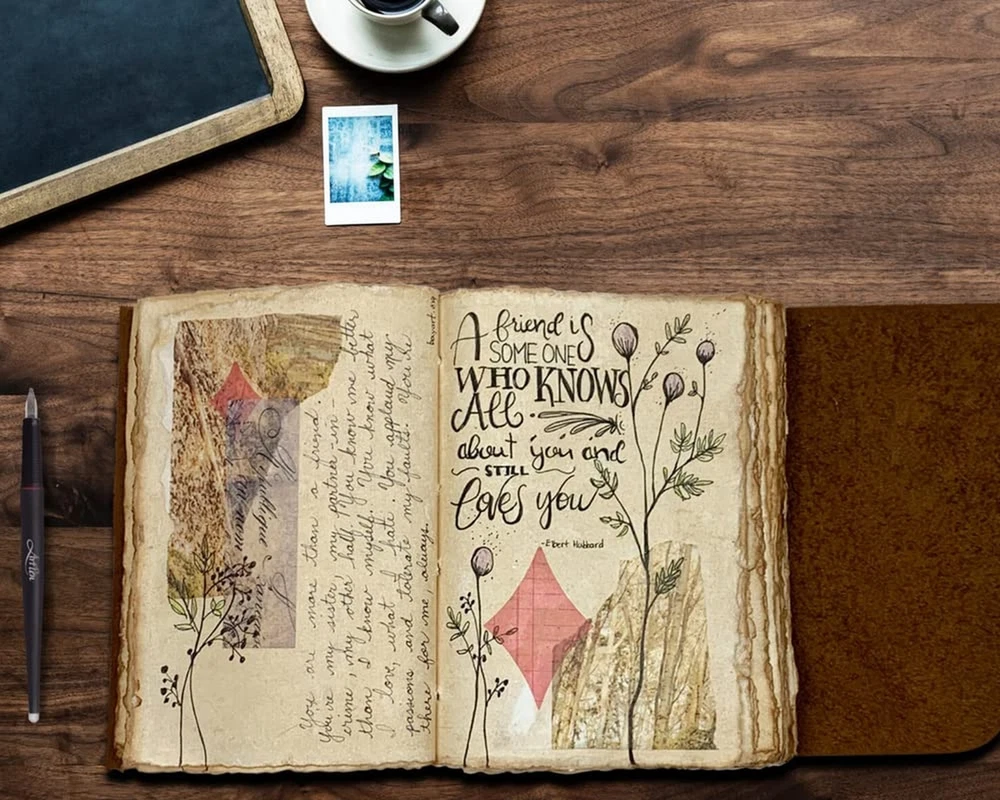 You are more than a friend.
You're my sister, my partner-in-
crime, my other half. You know me better
than I know myself. You know what
I love, what I hate. You applaud my
passions and tolerate my faults. You're
there for me, always.
A friend is
SOME ONE
WHO KNOWS
All
about you and
STILL
loves you
-Elbert Hubbard
Artler